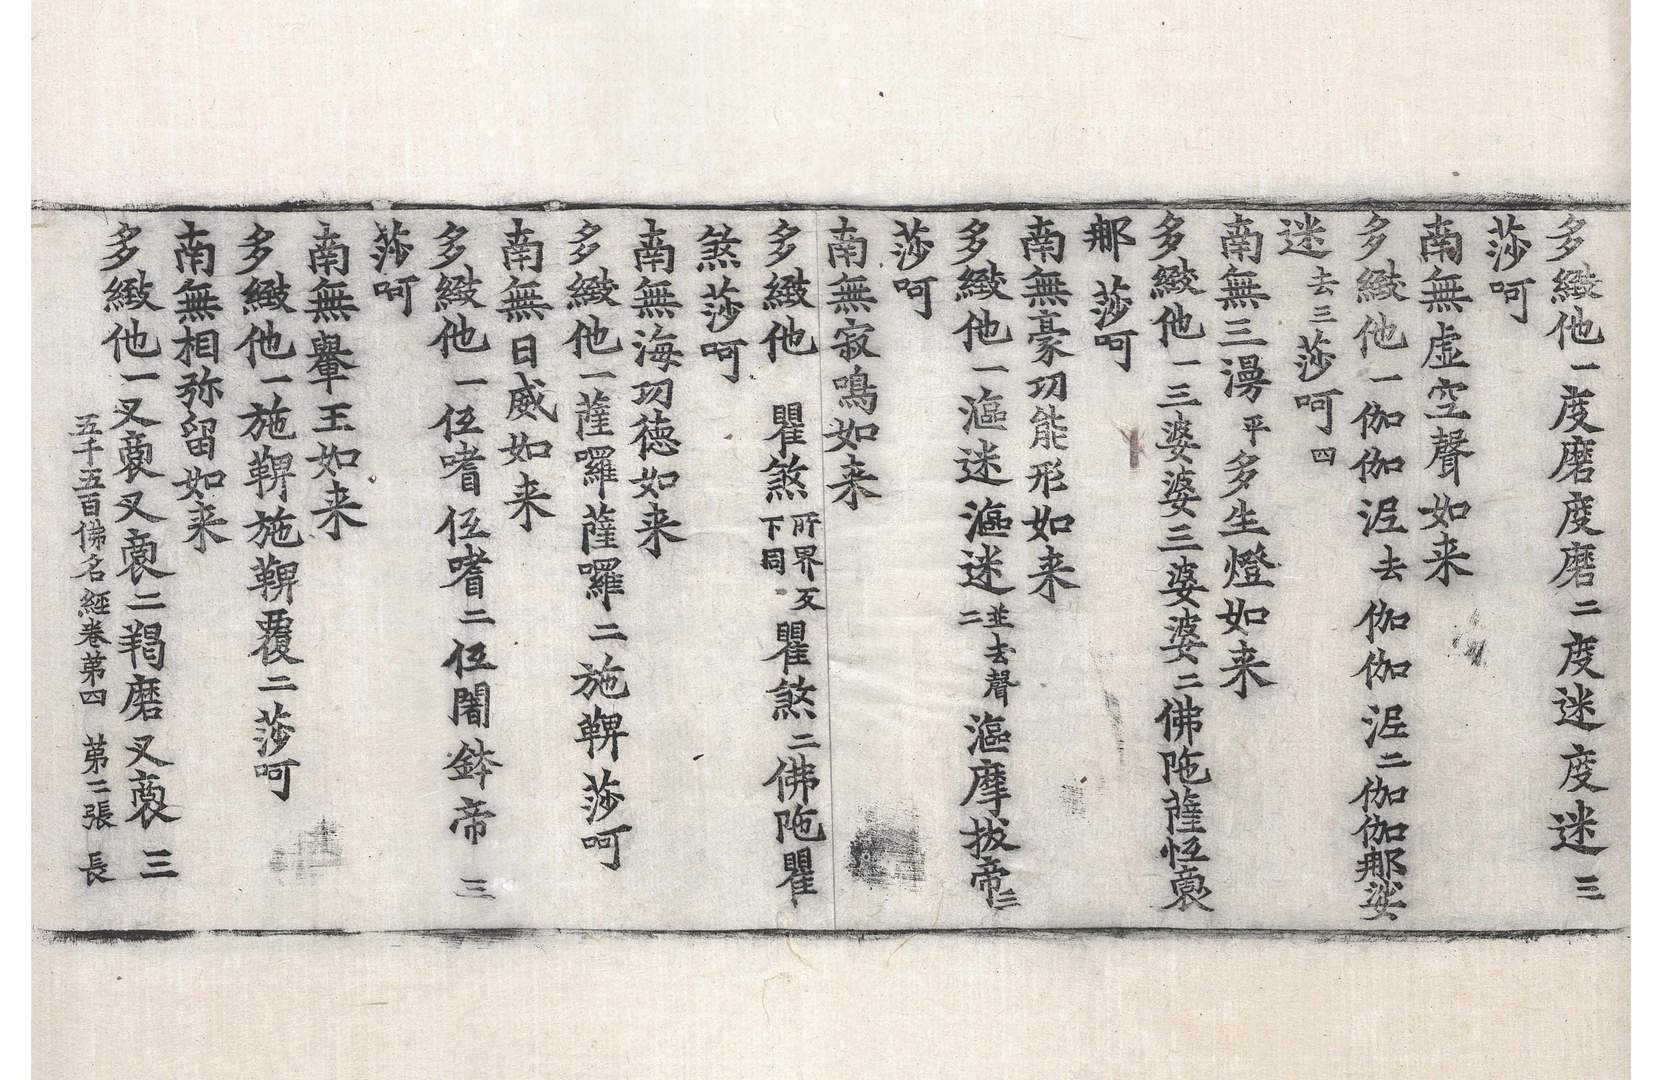 多緻他一度磨度磨二度迷度迷三
莎呵
南無虛空聲如来
多緻他一伽伽泥去伽伽泥二伽伽那娑
迷去三莎呵四
南無三漫平多生燈如来
多緻他一三婆婆三婆婆二佛陁薩恒裔
那莎呵
南無豪㓛能形如来
多緻他一漚迷漚迷並去聲二漚摩拔帝三
莎呵
南無寂鳴如来
多緻他瞿煞所界反下同瞿煞二佛陁瞿
煞莎呵
南無海㓛德如来
多緻他一薩囉薩囉二施鞞莎呵
南無日威如来
多緻他一伍嗜伍嗜二伍闍鉢帝三
莎呵
南無轝王如来
多緻他一施鞞施鞞覆二莎呵
南無相弥留如来
多緻他一叉裔叉裔二羯磨叉裔三
五千五百佛名經卷第四 第二張 長